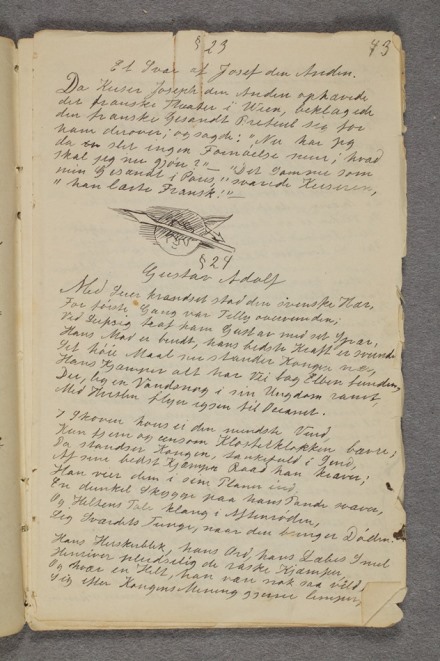 § 23 43
Et Svar af Josef den Anden.
Da Keiser Joseph den Anden ophævede
det franske Theater i Wien, beklagede
den franske Gesandt sig for
ham derover; og sagde: "Nu har jeg
da slet ingen Fornøielse mere; hvad
skal jeg nu gjøre?" — "Det samme som
min Gesandt i Paris," svarede Keiseren,
"han læste Fransk!" —
§ 24
Gustav Adolf
Med Seier krandset stod den svenske Hær,
For første Gang var Tilly overvunden;
Ved Leipzig traf ham Gustav med sit Sværd,
Hans Mod er brudt, hans bedste Kraft er svunden
Sit høie Maal nu stander Kongen nær,
Hans Kjæmper alt har Vei bag Elben funden,
Der, lig en Vandenog i sin Ungdom
Med Hvirvlen flyer igjen til Oceanet.
I Skoven høres ei den mindste Vind,
Kun fjern og eensom Klosterklokken bæver;
Da standser Kongen, tankefuld i Sind,
Af sine bedste Kjæmper Raad han kræver;
Han veer dem i sin Plan ind,
En dunkel Skygge paa hans Pande svæver,
Og Heltens Tale klang i Aftenrøden,
Lig Sværdets Tunge, naar den bringer Døden.
Hans Herskerblik, hans Ord, hans Læbes Smil
Henriver de raske Kjæmper,
Og hvær en Helt, han var nok saa vild,
Sig efter Kongens Mening gjerne lemper,